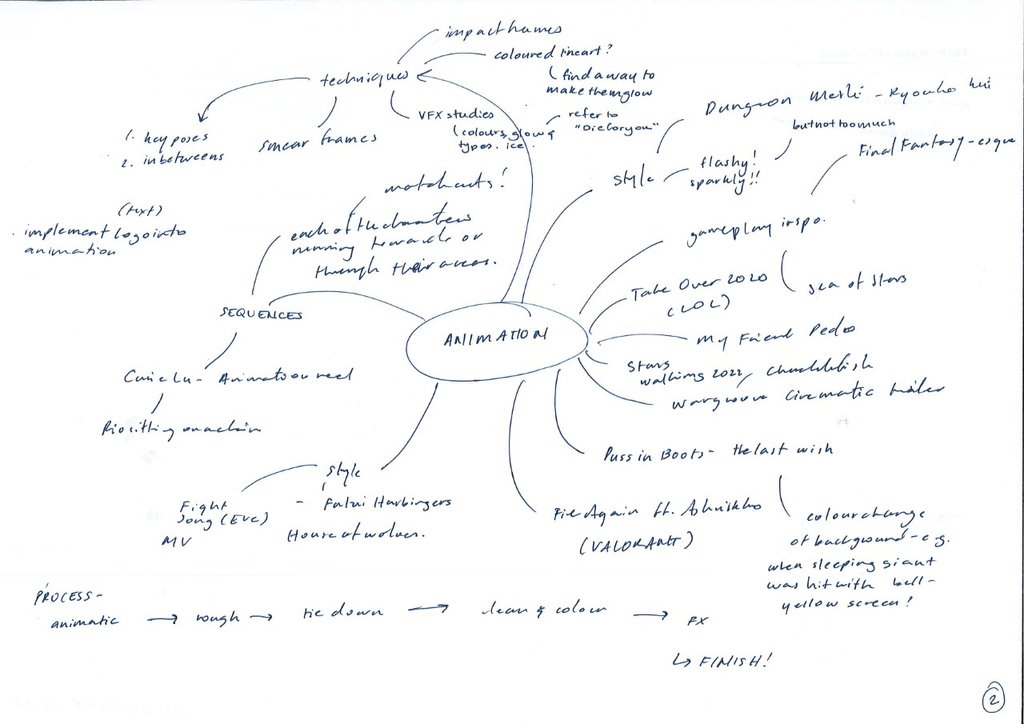 impact frames
coloured lineart?
find a way to
make them glow
techniques
VFX studies
(colours, glow &
types. ice.
refer to
"Die for you"
1. key poses
2. inbetweens
smear frames
Dungeon Meshi - Ryouko Kui
but not too much
style
flashy!
sparkly!!
Final Fantasy-esque
match cuts!
(text)
implement logo into
animation
each of the characters
running towards or
through their areas.
gameplay inspo.
Sea of Stars
Take Over 2020
(LOL)
SEQUENCES
ANIMATION
My Friend Pedro
Stars
walking 2022
Chucklefish
wargroove cinematic trailer
- Animation reel
Puss in Boots - the last wish
style
Fight
Song (Eve)
MV
- Fatui Harbingers
House of wolves.
Fire Again ft. Ashnikko
(VALORANT)
colour change
of background - e.g.
when sleeping giant
was hit with bell -
yellow screen!
PROCESS -
animatic → rough → tie down → clean & colour → FX
↳ FINISH!
2